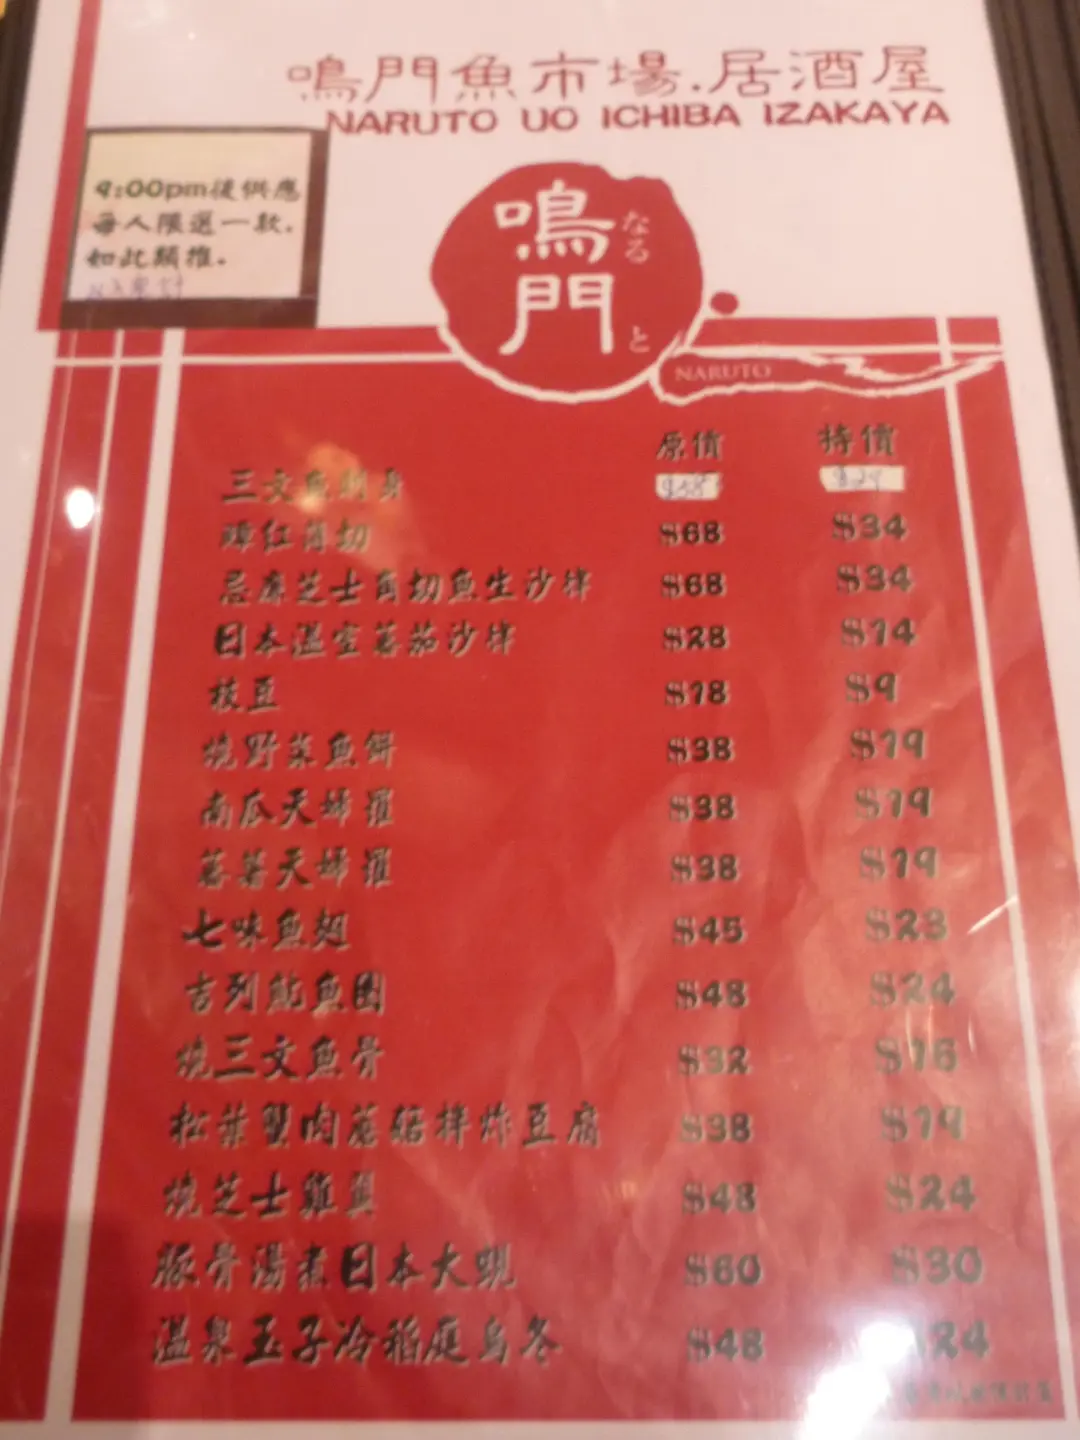 鳴門魚市場.居酒屋
NARUTO UO ICHIBA IZAKAYA
9:00pm後供應
每人限選一款.
如此類推.
鳴門
なると
NARUTO
原價 特價
三文魚刺身 $58
$68 $34
芝士角切魚生沙律 $68 $34
日本溫室蕃茄沙律 $28 $14
枝豆 $18 $9
燒野菜魚餅 $38 $19
南瓜天婦羅 $38 $19
蕃薯天婦羅 $38 $19
七味魚翅 $45 $23
吉列魷魚圈 $48 $24
燒三文魚骨 $32 $16
松葉蟹肉蘑菇拌炸豆腐 $38 $19
燒芝士雞翼 $48 $24
豚骨湯煮日本大蜆 $60 $30
溫泉玉子冷稻庭烏冬 $48 $24